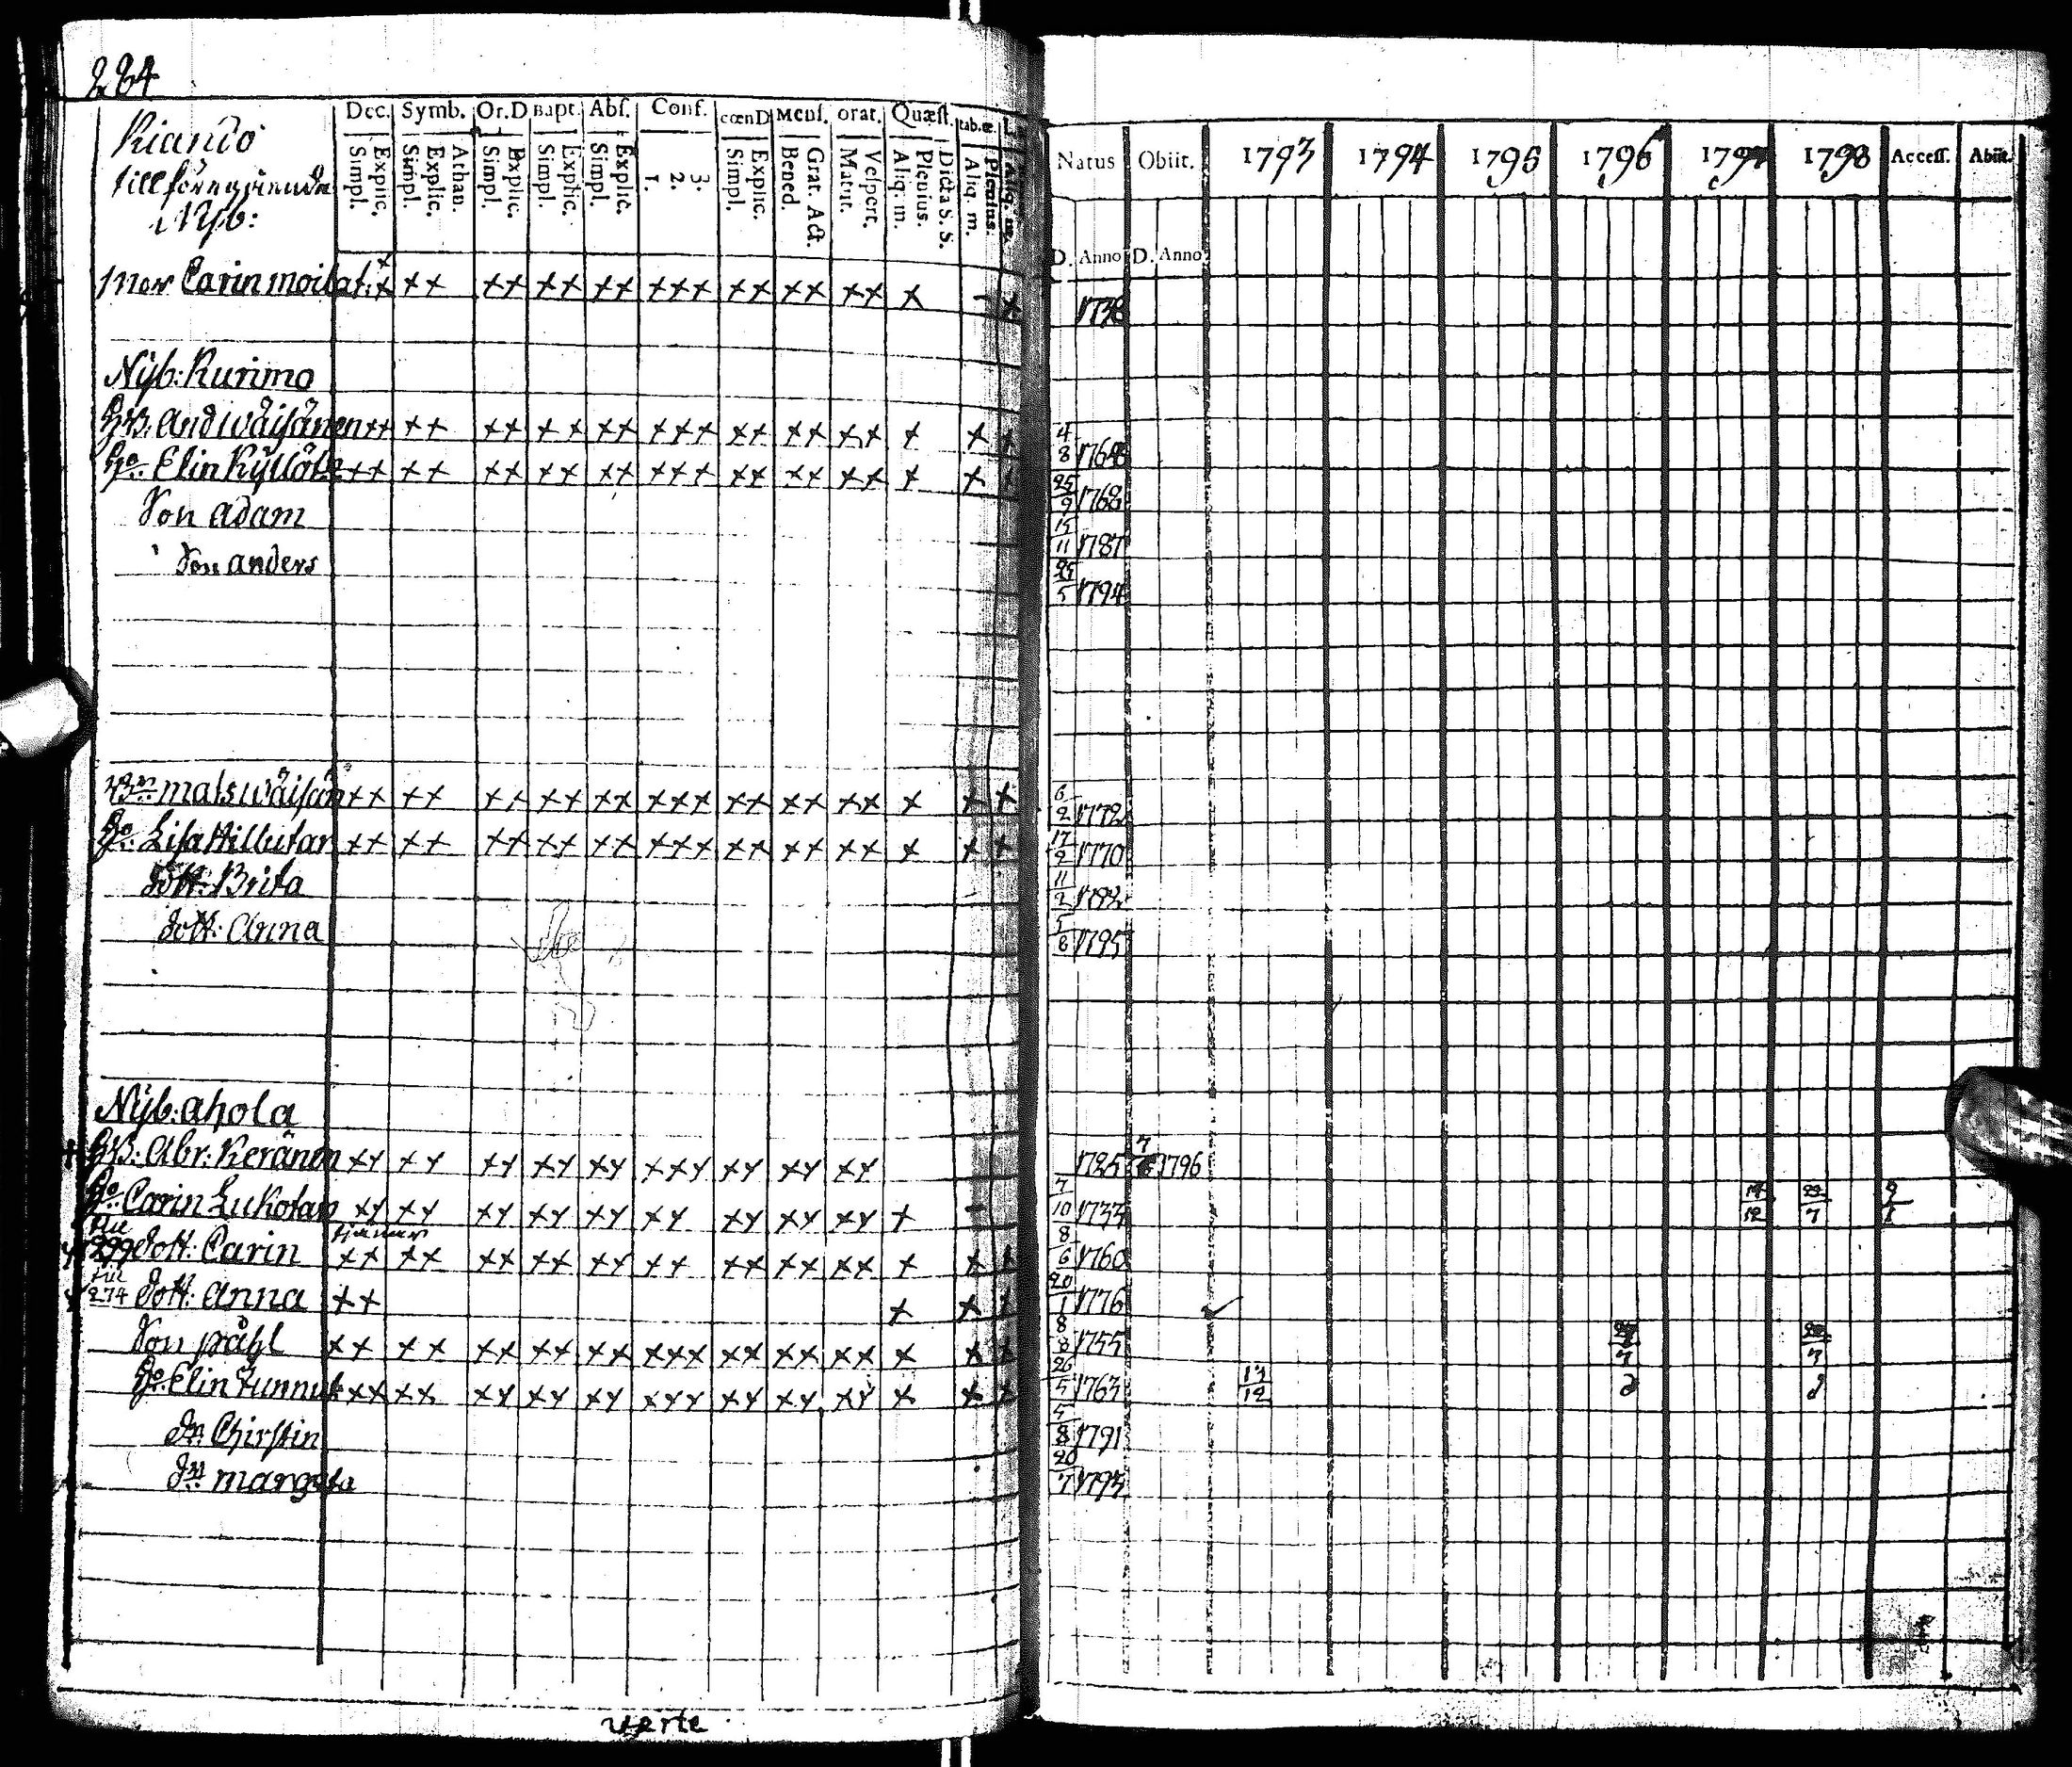 264
Dec. Symb. Or.D Bapt. Abſ. Conf. cœnD Menſ. orat. Quæſt. tab.œ.
Natus Obiit. 1793 1794 1795 1796 1797 1798 Acceſſ. Abiit.
Explic. Simpl. Athan. Explic. Simpl. Explic. Simpl. Explic. Simpl. Explic. Simpl. 3. 2. 1. Explic. Simpl. Grat. Act. Bened. Veſpert. Matut. Dicta S. S. Plenius. Aliq. m. Plenius. Aliq. m. Aliq. m.
D. Anno D. Anno
Kiando
till föregående
Nyb:
mor Carin moilat: x x x x x x x x x x x x x x x x x x x x x - x 1738
Nyb: Kurimo
HB: And wäisänen x x x x x x x x x x x x x x x x x x x x x x 4/8 1764
Ho: Elin Kyllöt x x x x x x x x x x x x x x x x x x x x x x 25/9 1768
Son Adam 15/11 1787
Son anders 25/5 1794
mats wäisän x x x x x x x x x x x x x x x x x x x x x x 6/2 1772
Ho: Lisa Hillutar x x x x x x x x x x x x x x x x x x x x x x 17/2 1770
Dott: Brita 11/2 1792
Dott: Anna 5/8 1795
Nyb: ahola
HB: Abr: Keränen x x x x x x x x x x x x x x x x x x x 1725 1796
Ho: Carin Lukotar x x x x x x x x x x x x x x x x x x x - 7/10 1733 19/12 22/7 9/1
till 299 Dott: Carin tjenar x x x x x x x x x x x x x x x x x x x x x 8/6 1760
till 274 Dott: Anna x x x x x 20/1 1776
Son påhl x x x x x x x x x x x x x x x x x x x x x x 8/8 1755
Ho: Elin Kunnut x x x x x x x x x x x x x x x x x x x x x x 26/5 1763 13/12
Dr: Chirstin 5/8 1791
Dr: margeta 20/7 1793
verte